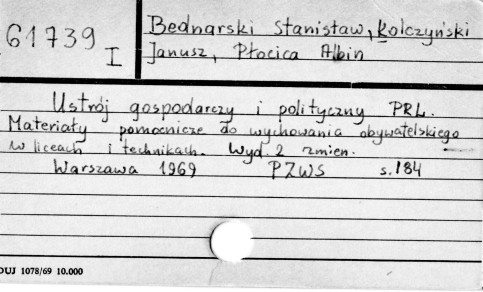 61739
I
Bednarski Stanisław, Kolczyński
Janusz, Płocica Albin
Ustrój gospodarczy i polityczny PRL.
Materiały pomocnicze do wychowania obywatelskiego
w liceach i technikach. Wyd. 2 zmien.
Warszawa 1969 PZWS s. 184
DUJ 1078/69 10.000